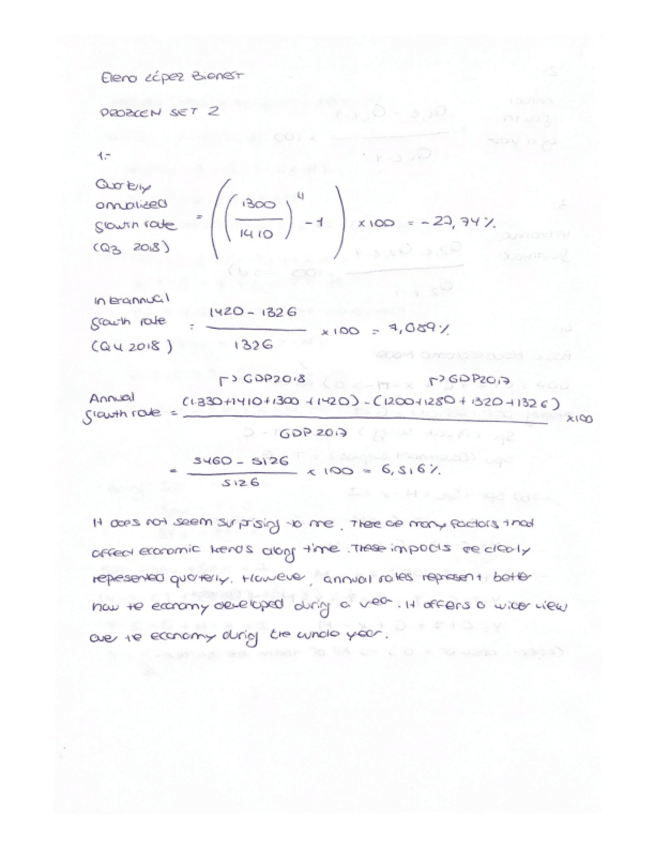 Elena López Bionest
PROBLEM SET 2
1.-
Quarterly annualized growth rate (Q3 2018) = ((1300/1410)^4 - 1) x100 = -27,74%
Interannual growth rate (Q4 2018) = (1420 - 1326)/1326 x100 = 7,089%
↱> GDP2018 ↱> GDP2017
Annual growth rate = ((1330+1410+1300+1420) - (1200+1280+1320+1326))/GDP 2017 x100
= (5460 - 5126)/5126 x 100 = 6,516%.
It does not seem surprising to me. There are many factors that
affect economic trends along time. These impacts are clearly
represented quarterly. However, annual rates represent better
how the economy developed during a year. It offers a wider view
over the economy during the whole year.